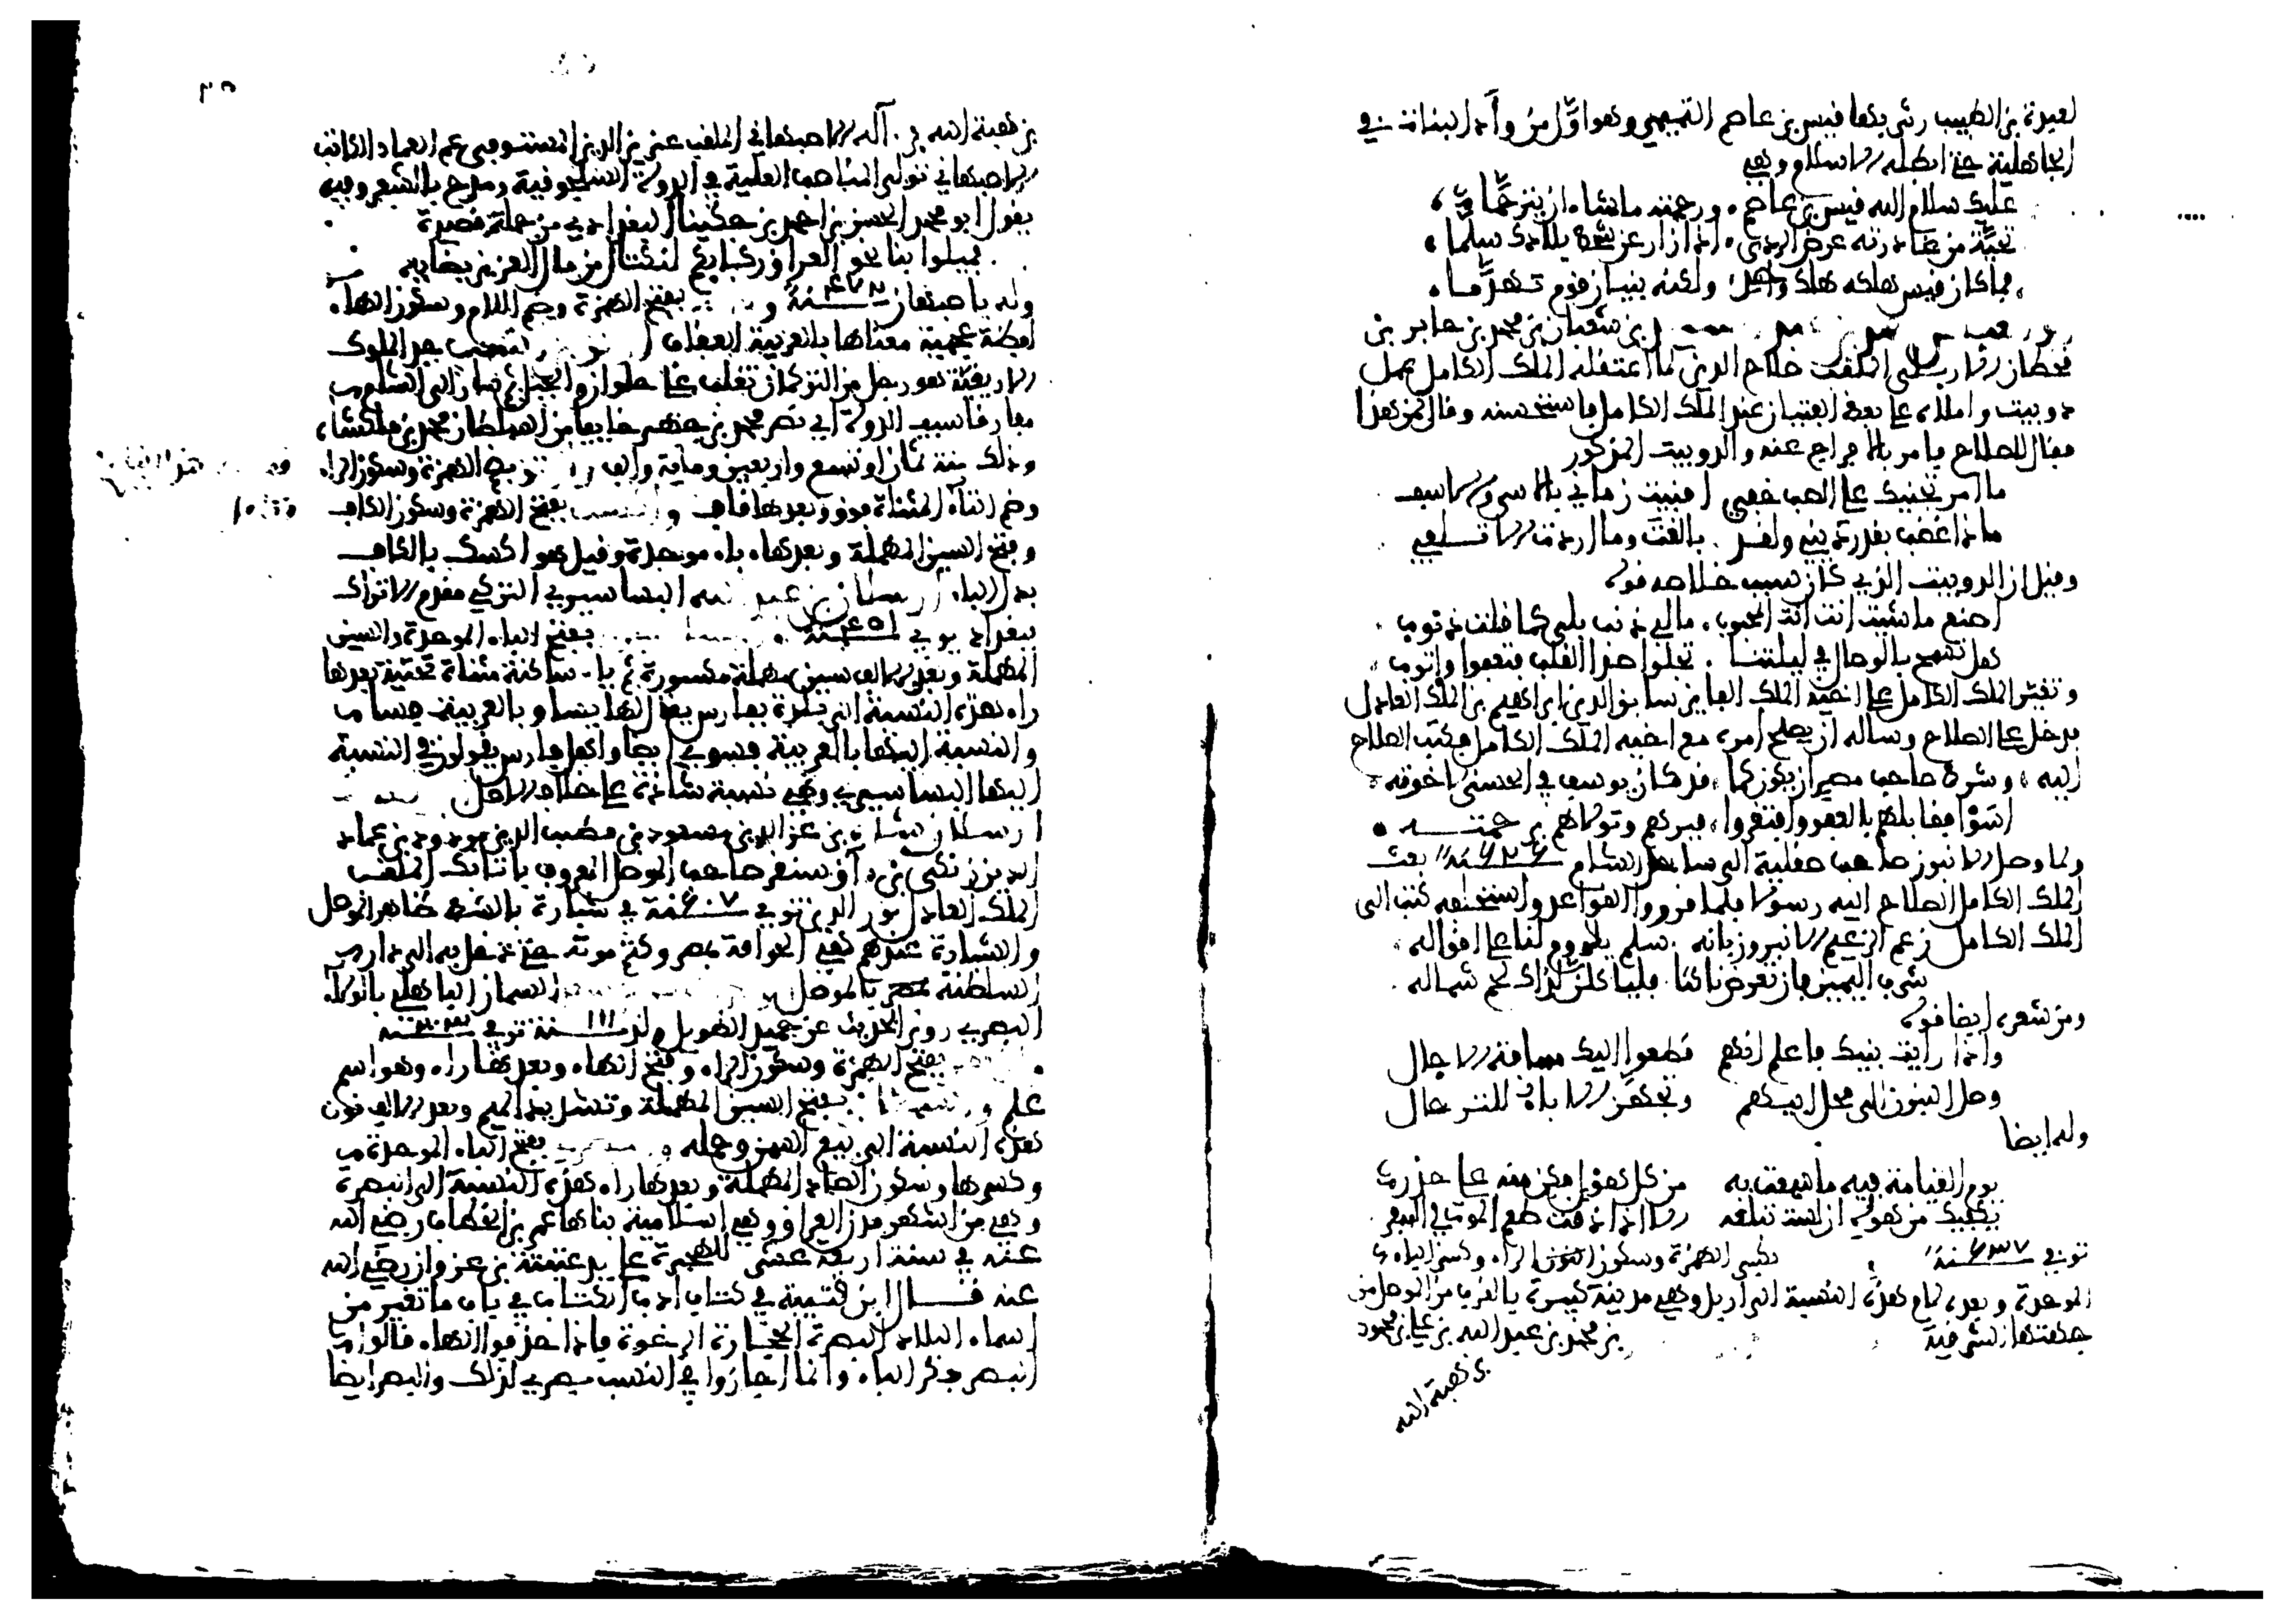 لعبدة بن الطبيب رثى بها قيس بن عاصم التميمي وهو اوّل من وأد البنات في
الجاهلية حتى ابطله الاسلام وهي
عليك سلام الله قيس بن عاصم ورحمته ما شاء ان يترحّما
تحيّة من غادرته عرض الردى اذا زار عن شحط بلادك سلّما
فما كان قيس هلكه هلك واحد ولكنه بنيان قوم تهدّما
بن شعبان بن محمد بن جابر بن
قحطان الاربلي الملقب صلاح الدين لما اعتقله الملك الكامل عمل
دوبيت واملاه على بعض القيان عند الملك الكامل فاستحسنه وقال لمن هذا
فقال للصلاح فامر بالافراج عنه والدوبيت المذكور
ما امر تجنيك على الصب خفي افنيت زماني بالاسى والاسف
ماذا غضب بقدر ذنبي ولقد بالغت وما اردت الا تلفي
وقيل ان الدوبيت الذي كان سبب خلاصه قوله
اصنع ما شئت انت انت المحبوب ما لي ذنب بلى كما قلت ذنوب
هل تسمح بالوصال في ليلتنا تجلوا صدا القلب وتعفوا واتوب
وتغير الملك الكامل على اخيه الملك الفايز سابق الدين ابراهيم بن الملك العادل
فدخل على الصلاح وساله ان يصلح امره مع اخيه الملك الكامل فكتب الصلاح
اليه وشرط صاحب مصر ان يكون كما قد كان يوسف في الحسنى لاخوته
اسَوْا فقابلهم بالعفو وافتقروا فبرهم وتولاهم برحمته
ولما وصل الانبرور صاحب صقلية الى ساحل الشام سنة ٦٢٦ بعث
الملك الكامل الصلاح اليه رسولا فلما قرروا القواعد واستحلفه كتب الى
الملك الكامل زعم الزعيم الانبرور بانه سلم يدوم لنا على اقواله
شرب اليمين فان تعرض ناكثا فلياكلن لذاك لحم شماله
ومن شعره ايضا قوله
واذا رايت بنيك فاعلم انهم قطعوا اليك مسافة الاجال
وصل البنون الى محل ابيهم وتجهز الاباء للترحال
وله ايضا
يوم القيامة فيه ما سمعت به من كل هول فكن منه على حذر
يكفيك من هوله ان لست تبلغه الا اذا ذقت طعم الموت في السفر
توفي سنة ٦٣١ بكسر الهمزة وسكون الراء وكسر الباء
الموحدة وبعده لام هذه النسبة الى اربل وهي مدينة كبيرة بالقرب من الموصل من
جهتها الشرقية بن محمد بن عبد الله بن علي بن محمود
بن هبة الله
٣٥
بن هبة الله بن آله الاصبهاني الملقب عزيز الدين المستوفي عم العماد الكاتب
الاصبهاني تولى المناصب العلية في الدولة السلجوقية ومدح بالشعر وفيه
يقول ابو محمد الحسن بن احمد بن حكينا البغدادي من جملة قصيدة
فميلوا بنا نحو العراق ركابكم لنكتال من مال العزيز بصاعه
ولد باصبهان سنة ٤٧٢ و بفتح الهمزة وضم اللام وسكون الهاء
لفظة عجمية معناها بالعربية العقاب جد الملوك
الارتقية هو رجل من التركمان تغلب على حلوان والجبل ثم سار الى الشام
مفارقا سيف الدولة ابي نصر محمد بن جهير خايفا من السلطان محمد بن ملكشاه
وذلك سنة ثمان او تسع واربعين وماية والف بضم الهمزة وسكون الراء
وضم التاء المثناة فوق وبعدها قاف بفتح الهمزة وسكون الكاف
وفتح السين المهملة وبعدها باء موحدة وقيل هو اكسك بالكاف
بدل الباء ارسلان بن عبد الله البساسيري التركي مقدم الاتراك
ببغداد توفي سنة ٤٥١ بفتح الباء الموحدة والسين
المهملة وبعد الالف سين مهملة مكسورة ثم ياء ساكنة مثناة تحتية بعدها
راء هذه النسبة الى بلدة بفارس يقال لها بسا وبالعربية فسا
والنسبة اليها بالعربية فسوي ايضا واهل فارس يقولون في النسبة
اليها البساسيري وهي نسبة شاذة على خلاف الاصل
ارسلان شاه بن عز الدين مسعود بن قطب الدين مودود بن عماد
الدين زنكي بن آق سنقر صاحب الموصل المعروف باتابك الملقب
الملك العادل نور الدين توفي سنة ٦٠٧ في شبارة بالشط ظاهر الموصل
والشبارة عندهم هي الحراقة بمصر وكتم موته حتى دخل به الى دار
السلطنة بالموصل السمان الباهلي بالولاء
البصري روى الحديث عن حميد الطويل ولد سنة ١١١ توفي سنة ٢٠٣
بفتح الهمزة وسكون الزاء وفتح الهاء وبعدها راء وهو اسم
علم بفتح السين المهملة وتشديد الميم وبعد الالف نون
هذه النسبة الى بيع السمن وحمله بفتح الباء الموحدة
وكسرها وسكون الصاد المهملة وبعدها راء هذه النسبة الى البصرة
وهي من اشهر مدن العراق وهي اسلامية بناها عمر بن الخطاب رضي الله
عنه في سنة اربعة عشر للهجرة على يد عتبة بن غزوان رضي الله
عنه قال ابن قتيبة في كتاب ادب الكتاب في باب ما تغير من
اسماء البلاد البصرة الحجارة الرخوة فاذا حذفوا الهاء قالوا
البصر فكسر الباء وانما اجازوا في النسب بصري لذلك والبصر ايضا